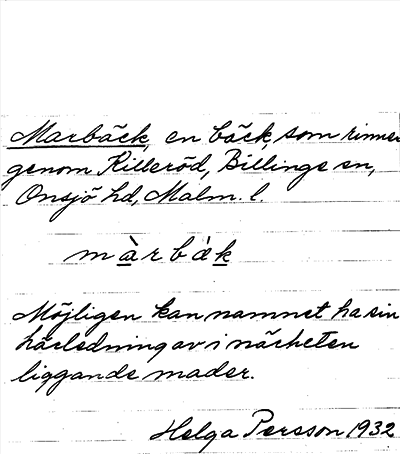 Marbäck, en bäck, som rinner
genom Killeröd, Billinge sn,
Onsjö hd, Malm. l.
màrbàk
Möjligen kan namnet ha sin
härledning av i närheten
liggande mader.
Helga Persson 1932